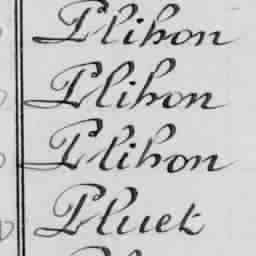 Plihon
Plihon
Plihon
Pluet